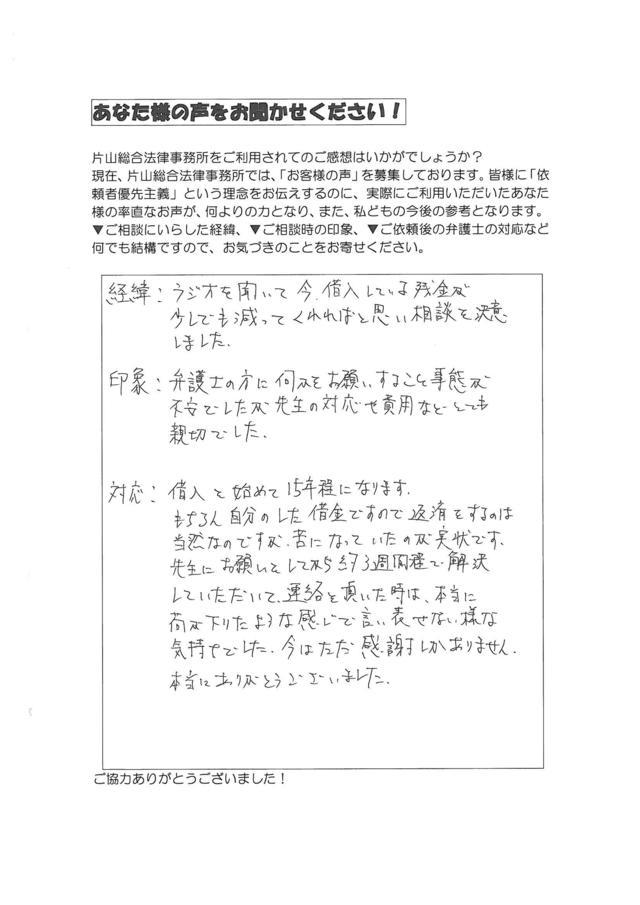 あなた様の声をお聞かせください!
片山総合法律事務所をご利用されてのご感想はいかがでしょうか?
現在、片山総合法律事務所では、「お客様の声」を募集しております。皆様に「依
頼者優先主義」という理念をお伝えするのに、実際にご利用いただいたあなた
様の率直なお声が、何よりの力となり、また、私どもの今後の参考となります。
▼ご相談にいらした経緯、▼ご相談時の印象、▼ご依頼後の弁護士の対応など
何でも結構ですので、お気づきのことをお寄せください。
経緯:ラジオを聞いて今、借入している残金が
少しでも減ってくれればと思い相談を決意
しました.
印象:弁護士の方に何かをお願いすること事態が
不安でしたが先生の対応や費用などとても
親切でした.
対応:借入を始めて15年程になります.
もちろん自分のした借金ですので返済をするのは
当然なのですが、苦になっていたのが実状です.
先生にお願いをしてから約3週間程で解決
していただいて、連絡を頂いた時は、本当に
荷が下りたような感じで言い表せない様な
気持ちでした.今はただ感謝しかありません.
本当にありがとうございました.
ご協力ありがとうございました!